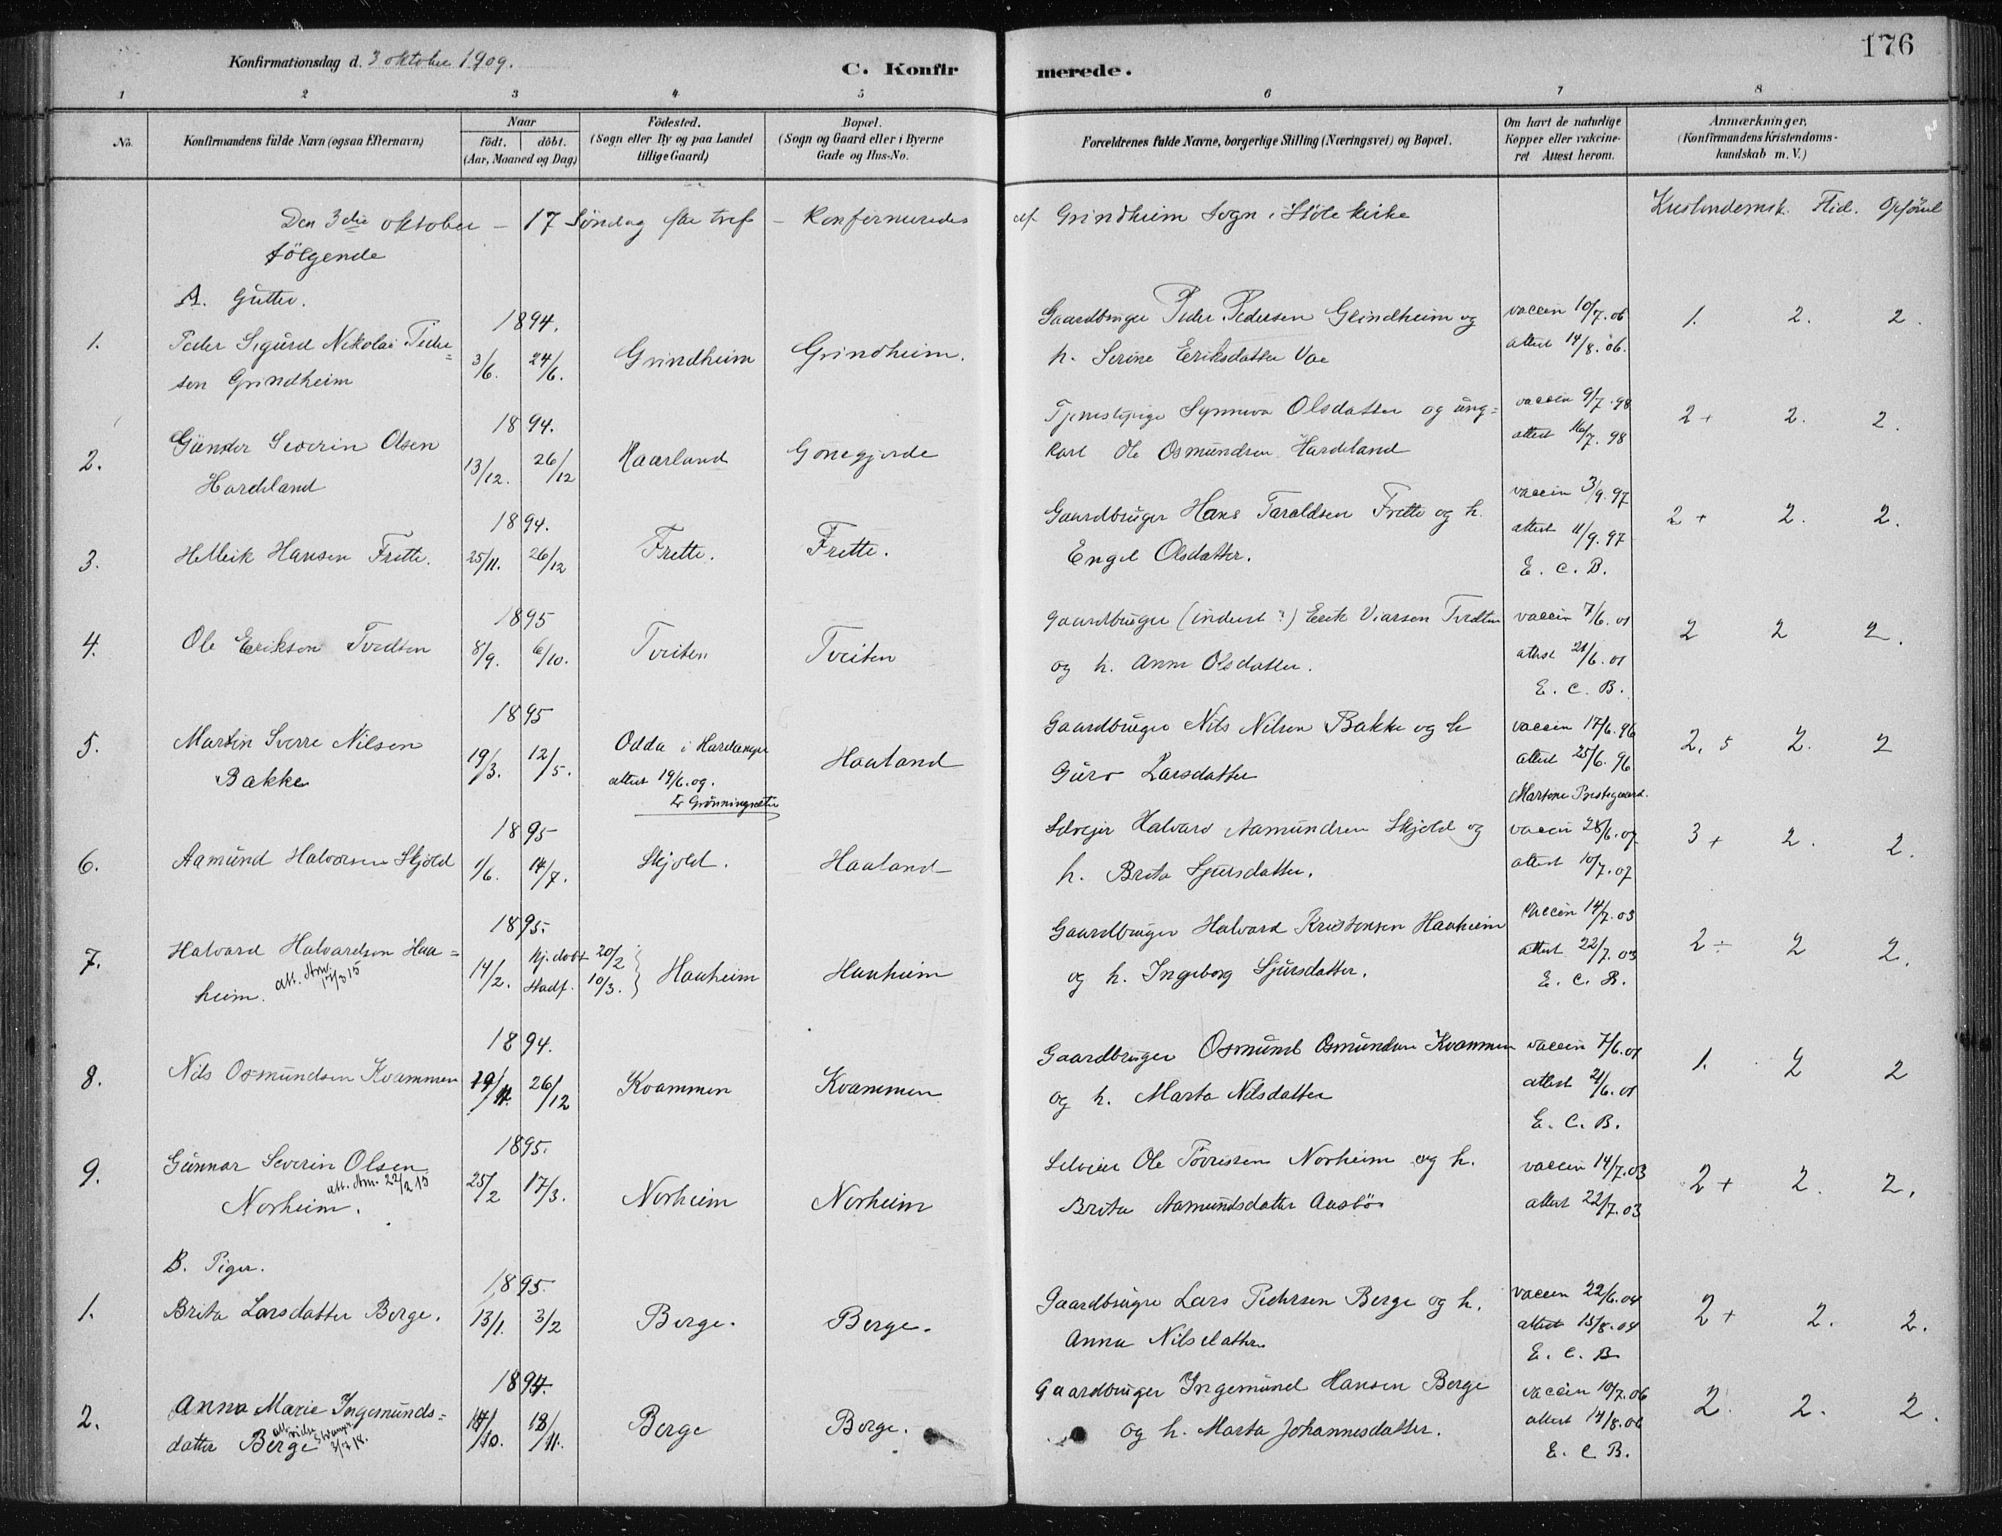 176
Konfirmationsdag d. 3 oktober 1909.
C. Konfirmerede.
1 2 3 4 5 6 7 8
No.
Konfirmandens fulde Navn (ogsaa Efternavn)
Naar
Födt. döbt.
(Aar, Maaned og Dag)
Födested.
(Sogn eller By og paa Landet
tillige Gaard)
Bopæl.
(Sogn og Gaard eller i Byerne
Gade og Hus-No.
Forældrenes fulde Navne, borgerlige Stilling (Næringsvei) og Bopæl.
Om havt de naturlige
Kopper eller vakcine-
ret Attest herom.
Anmærkninger,
(Konfirmandens Kristendoms-
kundskab m. V.)
Den 3die oktober – 17 Söndag efter tref – Konfirmeredes af Grindheim Sogn i Stöle kirke
følgende
Kristendomsk. Flid. Opförsel
A. Gutter.
1. Peder Sigurd Nikolai Peder=
sen Grindheim
1894.
3/6. 24/6.
Grindheim
Grindheim.
Gaardbruger Peder Pedersen Grindheim og
h. Serine Eriksdatter Vae
vaccin 10/7.06
attest 14/8.06.
1. 2. 2.
2. Gunder Severin Olsen
Hardeland
1894.
13/12. 26/12
Haarland
Gonegjerde
Tjenestepige Synneva Olsdatter og ung=
karl Ole Osmundsen Hardeland
vaccin 9/7.98
attest 16/7.98
2+ 2. 2.
3. Helleik Hansen Frette.
1894.
25/11. 26/12
Frette.
Frette.
Gaardbruger Hans Taraldsen Frette og h.
Engel Olsdatter.
vaccin 3/9.97
attest 11/9.97
E. C. B.
2+ 2. 2.
4. Ole Erikson Tvedten
1895
8/9. 6/10.
Tveiten
Tveiten
Gaardbruger (inderst?) Erik Viarsen Tvedten
og h. Anne Olsdatter.
vaccin 7/6.01
attest 21/6.01
E. C. B.
2 2 2.
5. Martin Sverre Nilsen
Bakke
1895
19/3. 12/5.
Odda i Hardanger
attest 19/6.09.
Er Grönningsæter
Haaland
Gaardbruger Nils Nilsen Bakke og h
Guro Larsdatter
vaccin 17/6.96
attest 25/6.96
Martene Prestegaard.
2,5 2. 2
6. Aamund Halvorsen Skjold
1895
1/6. 14/7.
Skjold.
Haaland
Selveier Halvard Aamundsen Skjold og
h. Brita Sjursdatter.
vaccin 28/6.07
attest 10/7.07
3+ 2. 2.
7. Halvard Halvardsen Haa=
heim.
att. Am. 17/3 15
1895.
14/2. hj. döbt 20/2
stadf. 10/3.
Haaheim
Haaheim
Gaardbruger Halvard Kristensen Haaheim
og h. Ingeborg Sjursdatter.
vaccin 14/7.03
attest 22/7.03
E. C. B.
2÷ 2 2.
8. Nils Osmundsen Kvammen
1894.
19/11. 26/12
Kvammen
Kvammen
Gaardbruger Osmund Osmundsen Kvammen
og h. Marta Nilsdatter
vaccin 7/6.01
attest 21/6.01
E. C. B.
1. 2 2
9. Gunnar Severin Olsen
att. Am. 22/2 15
Norheim.
1895.
25/2 17/3.
Norheim
Norheim
Selveier Ole Torristen Norheim og h.
Brita Aamundsdatter Aasbö
vaccin 14/7.03
attest 22/7.03
2+ 2. 2.
B. Piger.
1. Brita Larsdatter Berge.
1895.
13/1. 3/2
Berge.
Berge.
Gaardbruger Lars Pedersen Berge og h.
Anna Nilsdatter
vaccin 22/6.04
attest 15/8.04
E. C. B
2+ 2. 2.
2. Anna Marie Ingemunds=
datter Berge
3/7 18.
1894.
14/10. 18/11.
Berge
Berge.
Gaardbruger Ingemund Hansen Berge
og h. Marta Johannesdatter.
vaccin 10/7.06
attest 14/8.06
E. C B.
2. 2. 2.